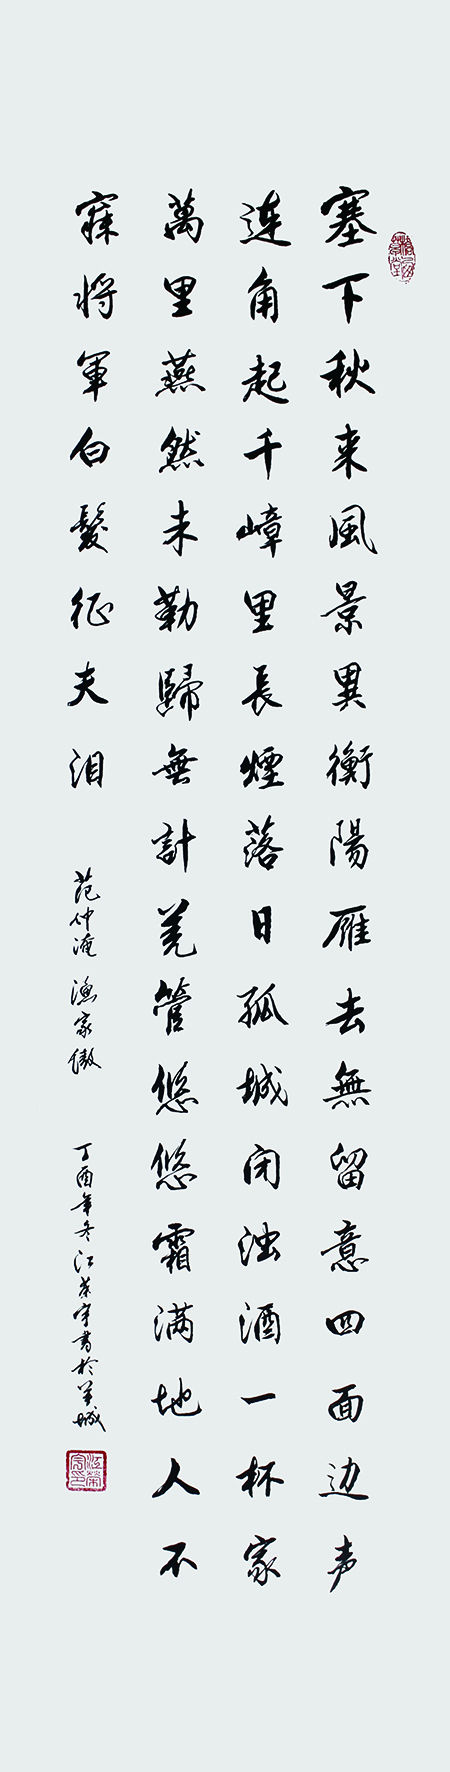 塞下秋来風景異衡陽雁去無留意四面边声
連角起千嶂里長煙落日孤城闭浊酒一杯家
萬里燕然未勒歸無計羌管悠悠霜满地人不
寐将軍白髮征夫泪
范仲淹 渔家傲 丁酉年冬江荣宇書於羊城